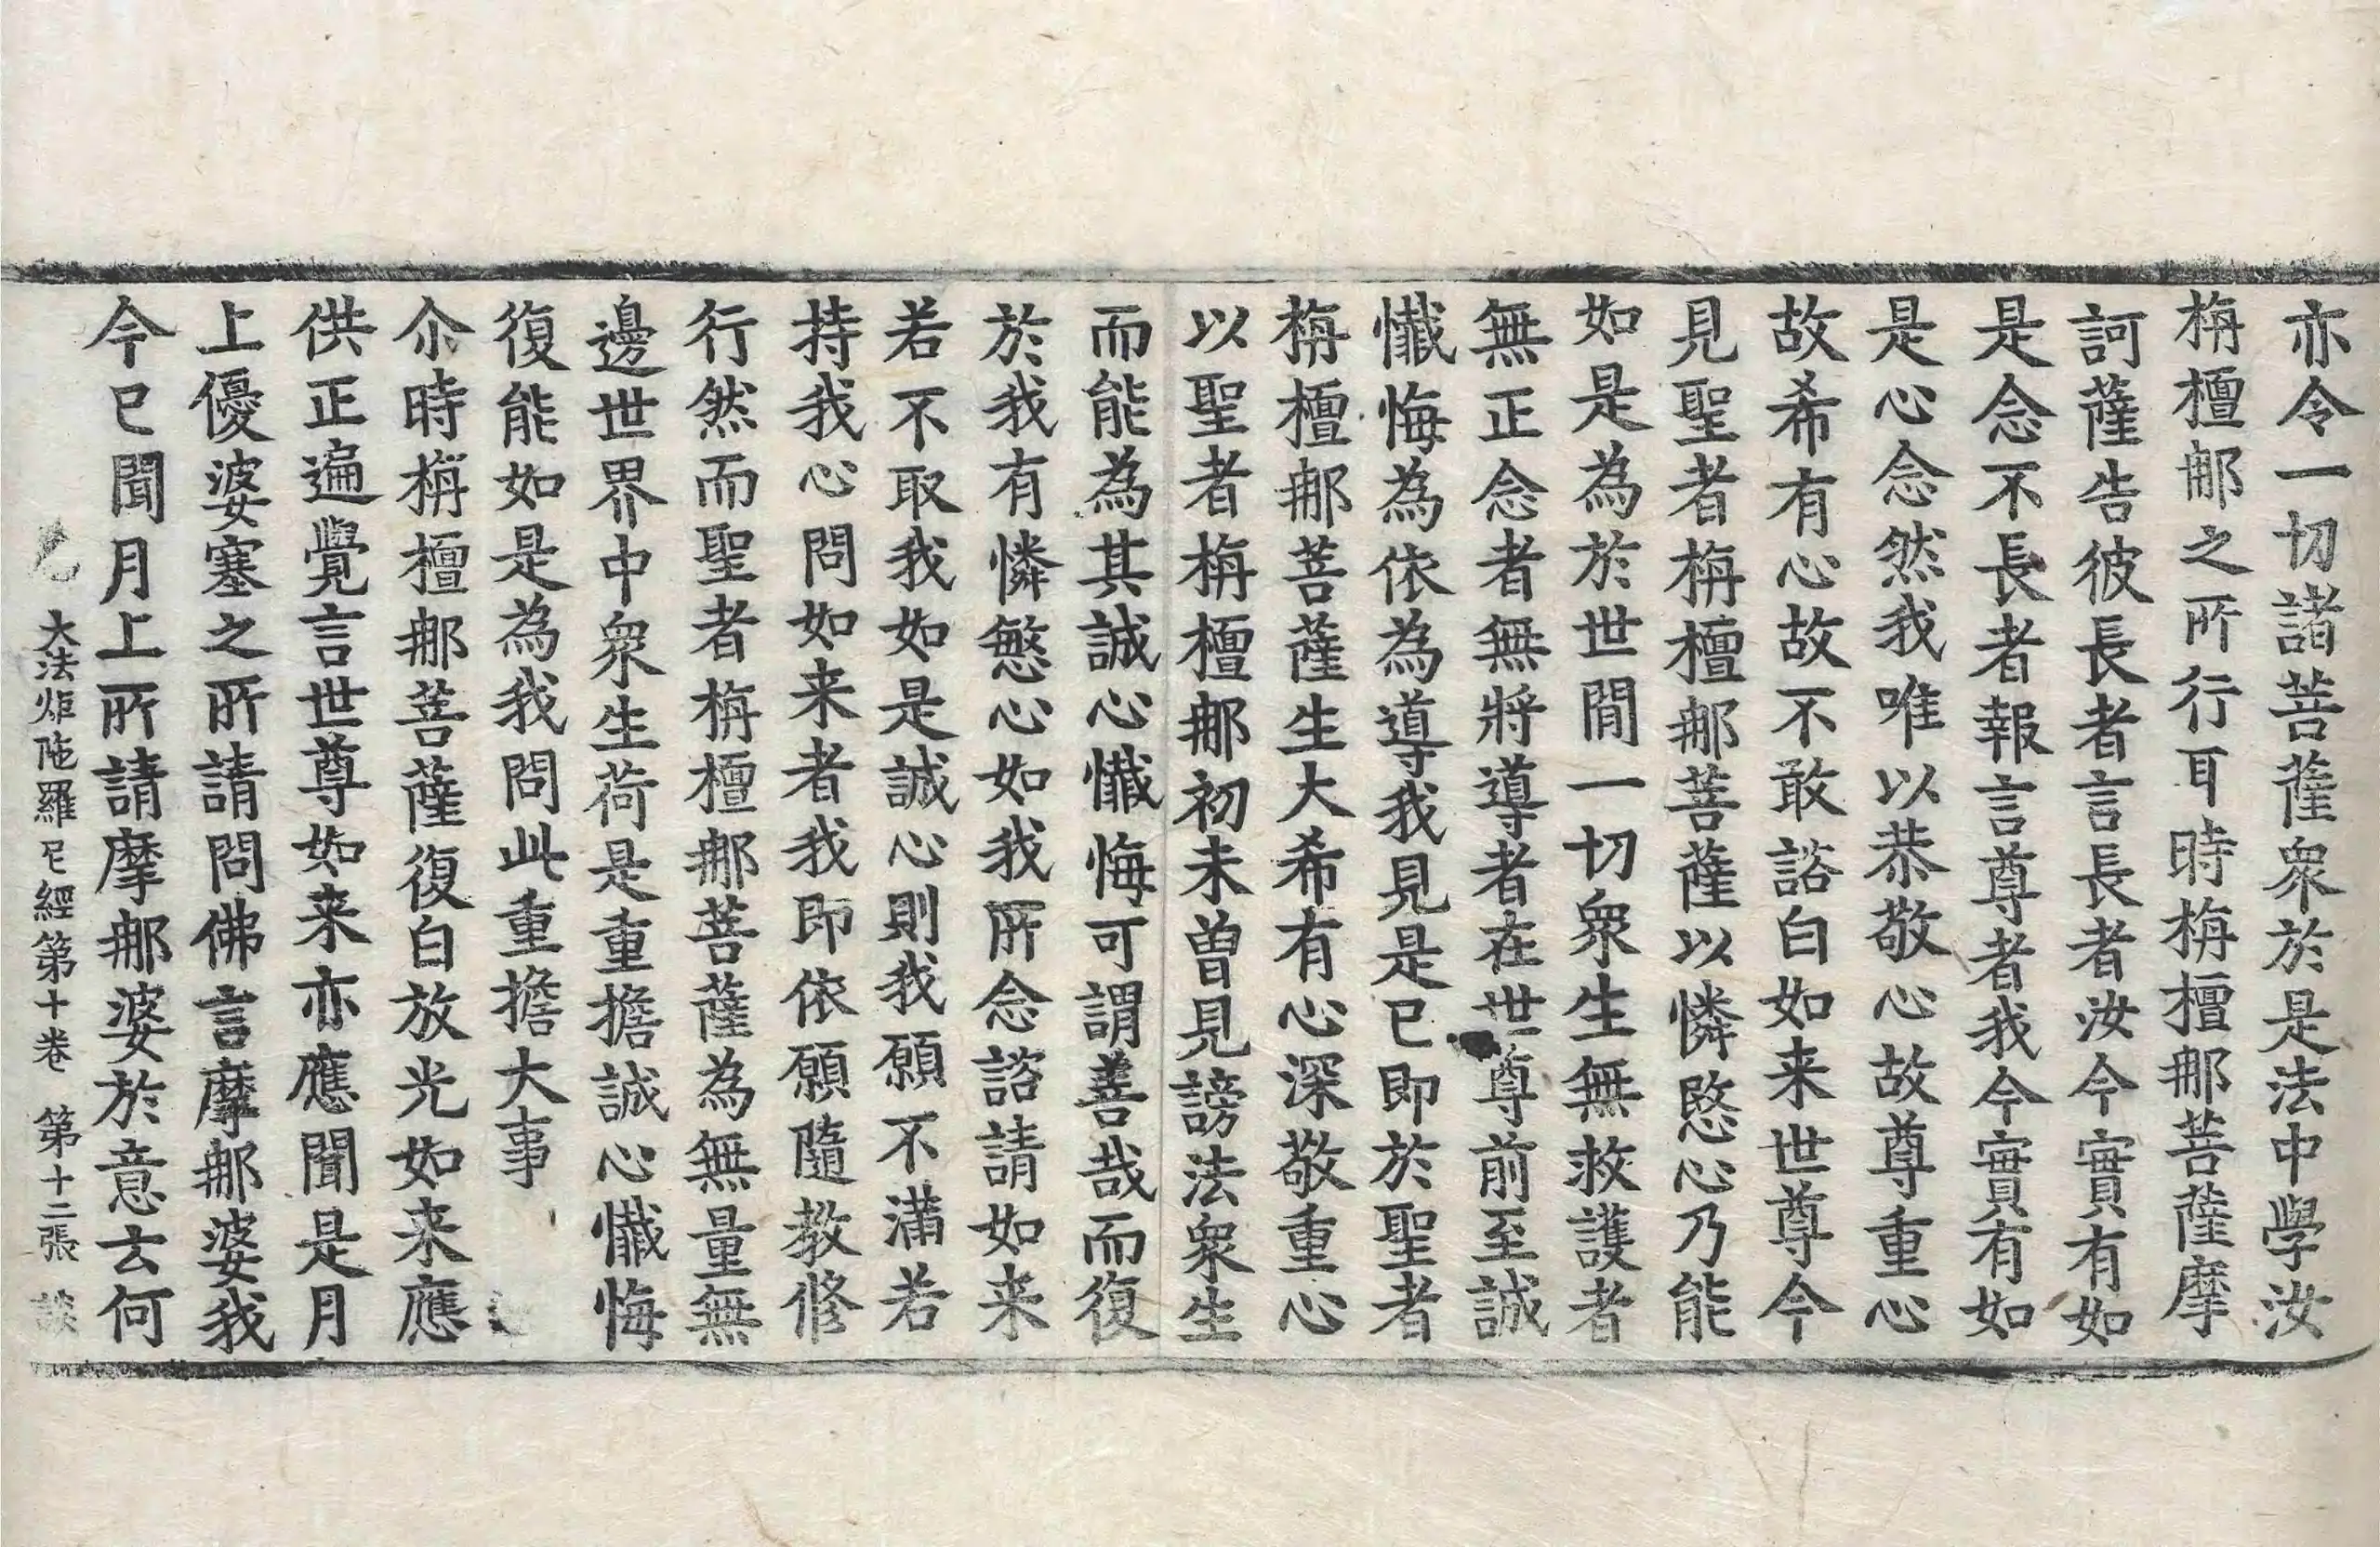 亦令一切諸菩薩衆於是法中學汝
栴檀那之所行耳時栴檀那菩薩摩
訶薩告彼長者言長者汝今實有如
是念不長者報言尊者我今實有如
是心念然我唯以恭敬心故尊重心
故希有心故不敢諮白如来世尊今
見聖者栴檀那菩薩以憐愍心乃能
如是為於世間一切衆生無救護者
無正念者無將導者在世尊前至誠
懺悔為依為導我見是已即於聖者
栴檀那菩薩生大希有心深敬重心
以聖者栴檀那初未曽見謗法衆生
而能為其誠心懺悔可謂善哉而復
於我有憐慜心如我所念諮請如来
若不取我如是誠心則我願不滿若
持我心問如来者我即依願隨教修
行然而聖者栴檀那菩薩為無量無
邊世界中衆生荷是重擔誠心懺悔
復能如是為我問此重擔大事
尒時栴檀那菩薩復白放光如来應
供正遍覺言世尊如来亦應聞是月
上優婆塞之所請問佛言摩那婆我
今已聞月上所請摩那婆於意云何
大法炬陁羅尼經第十卷 第十二張 談